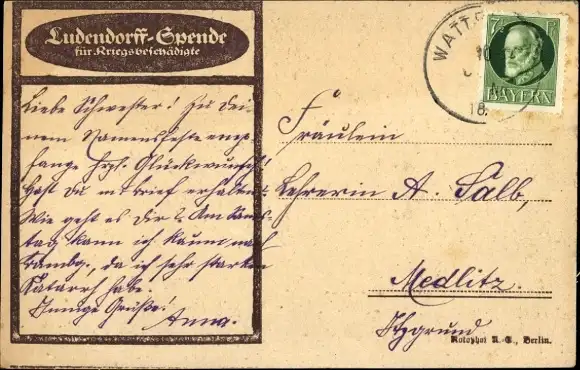 Ludendorff-Spende
für Kriegsbeschädigte
Liebe Schwester! Zu dei-
nem Namensfeste emp-
fange hrzl. Glückwunsch!
Hast Du m. Brief erhalten?
Wie geht es Dir? Am Sams-
tag kann ich kaum nach
Bambg., da ich sehr starken
Katarrh habe.
Innige Grüße!
Anna.
7½ PF
BAYERN
18.
Fräulein
Lehrerin A. Salb,
Medlitz.
Itzgrund
Rotophot A. G., Berlin.